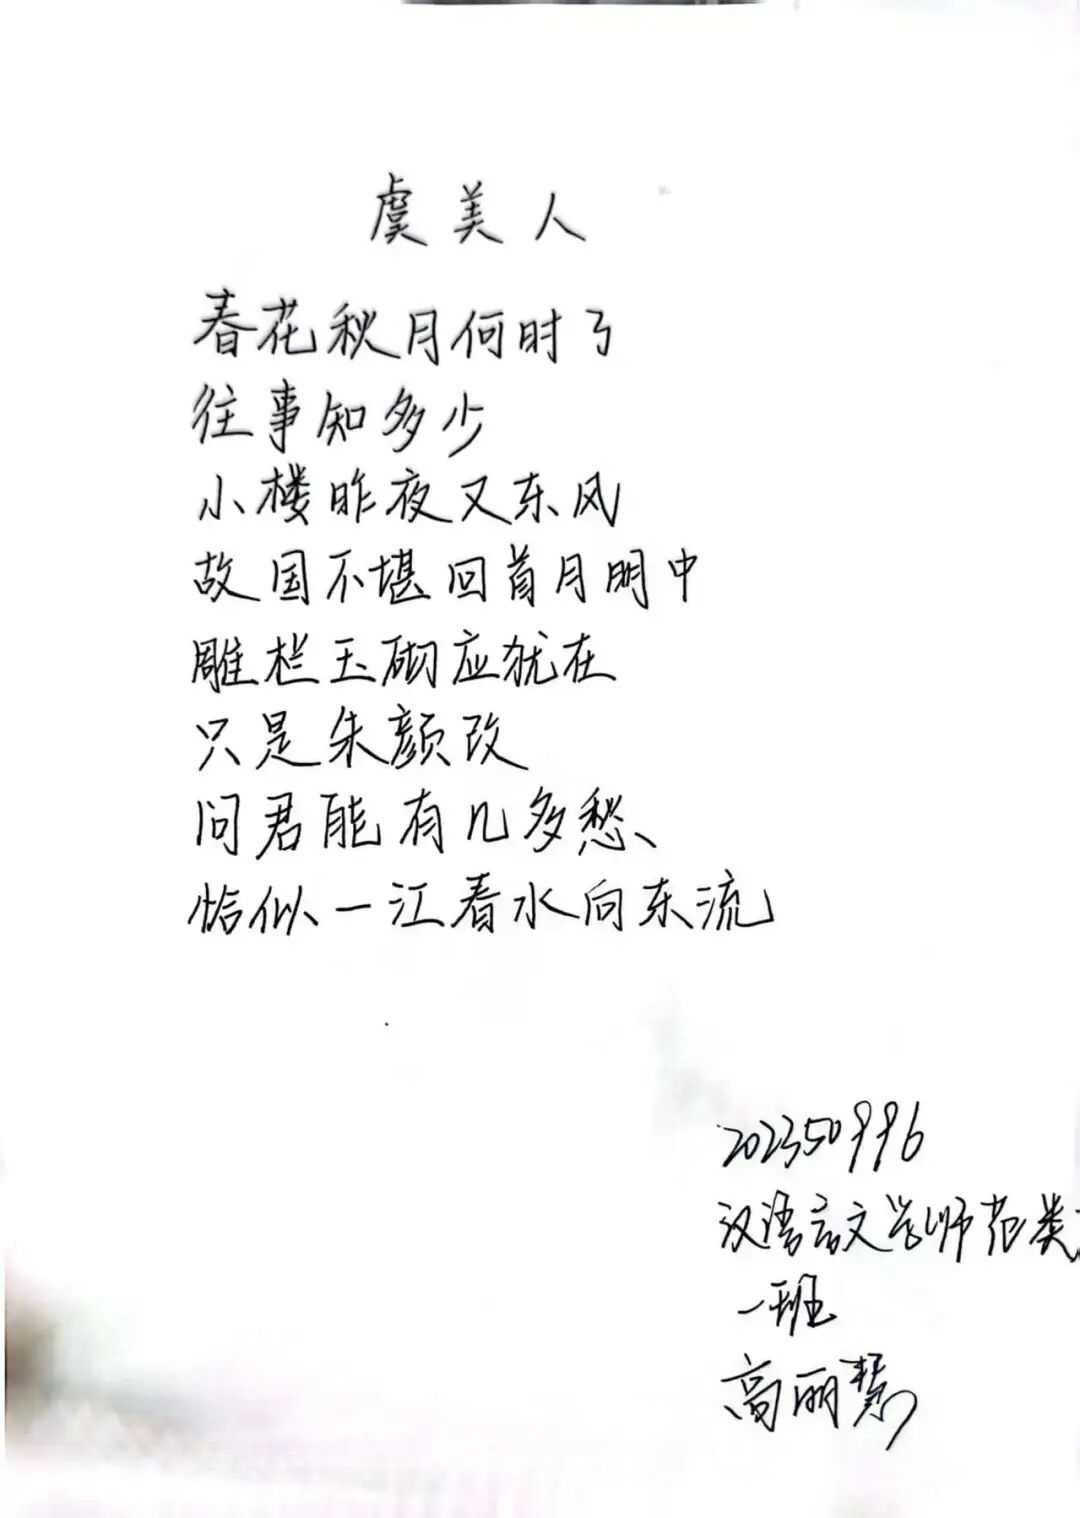 虞美人
春花秋月何时了
往事知多少
小楼昨夜又东风
故国不堪回首月明中
雕栏玉砌应犹在
只是朱颜改
问君能有几多愁、
恰似一江春水向东流
202350996
汉语言文学师范类
一班
高丽慧